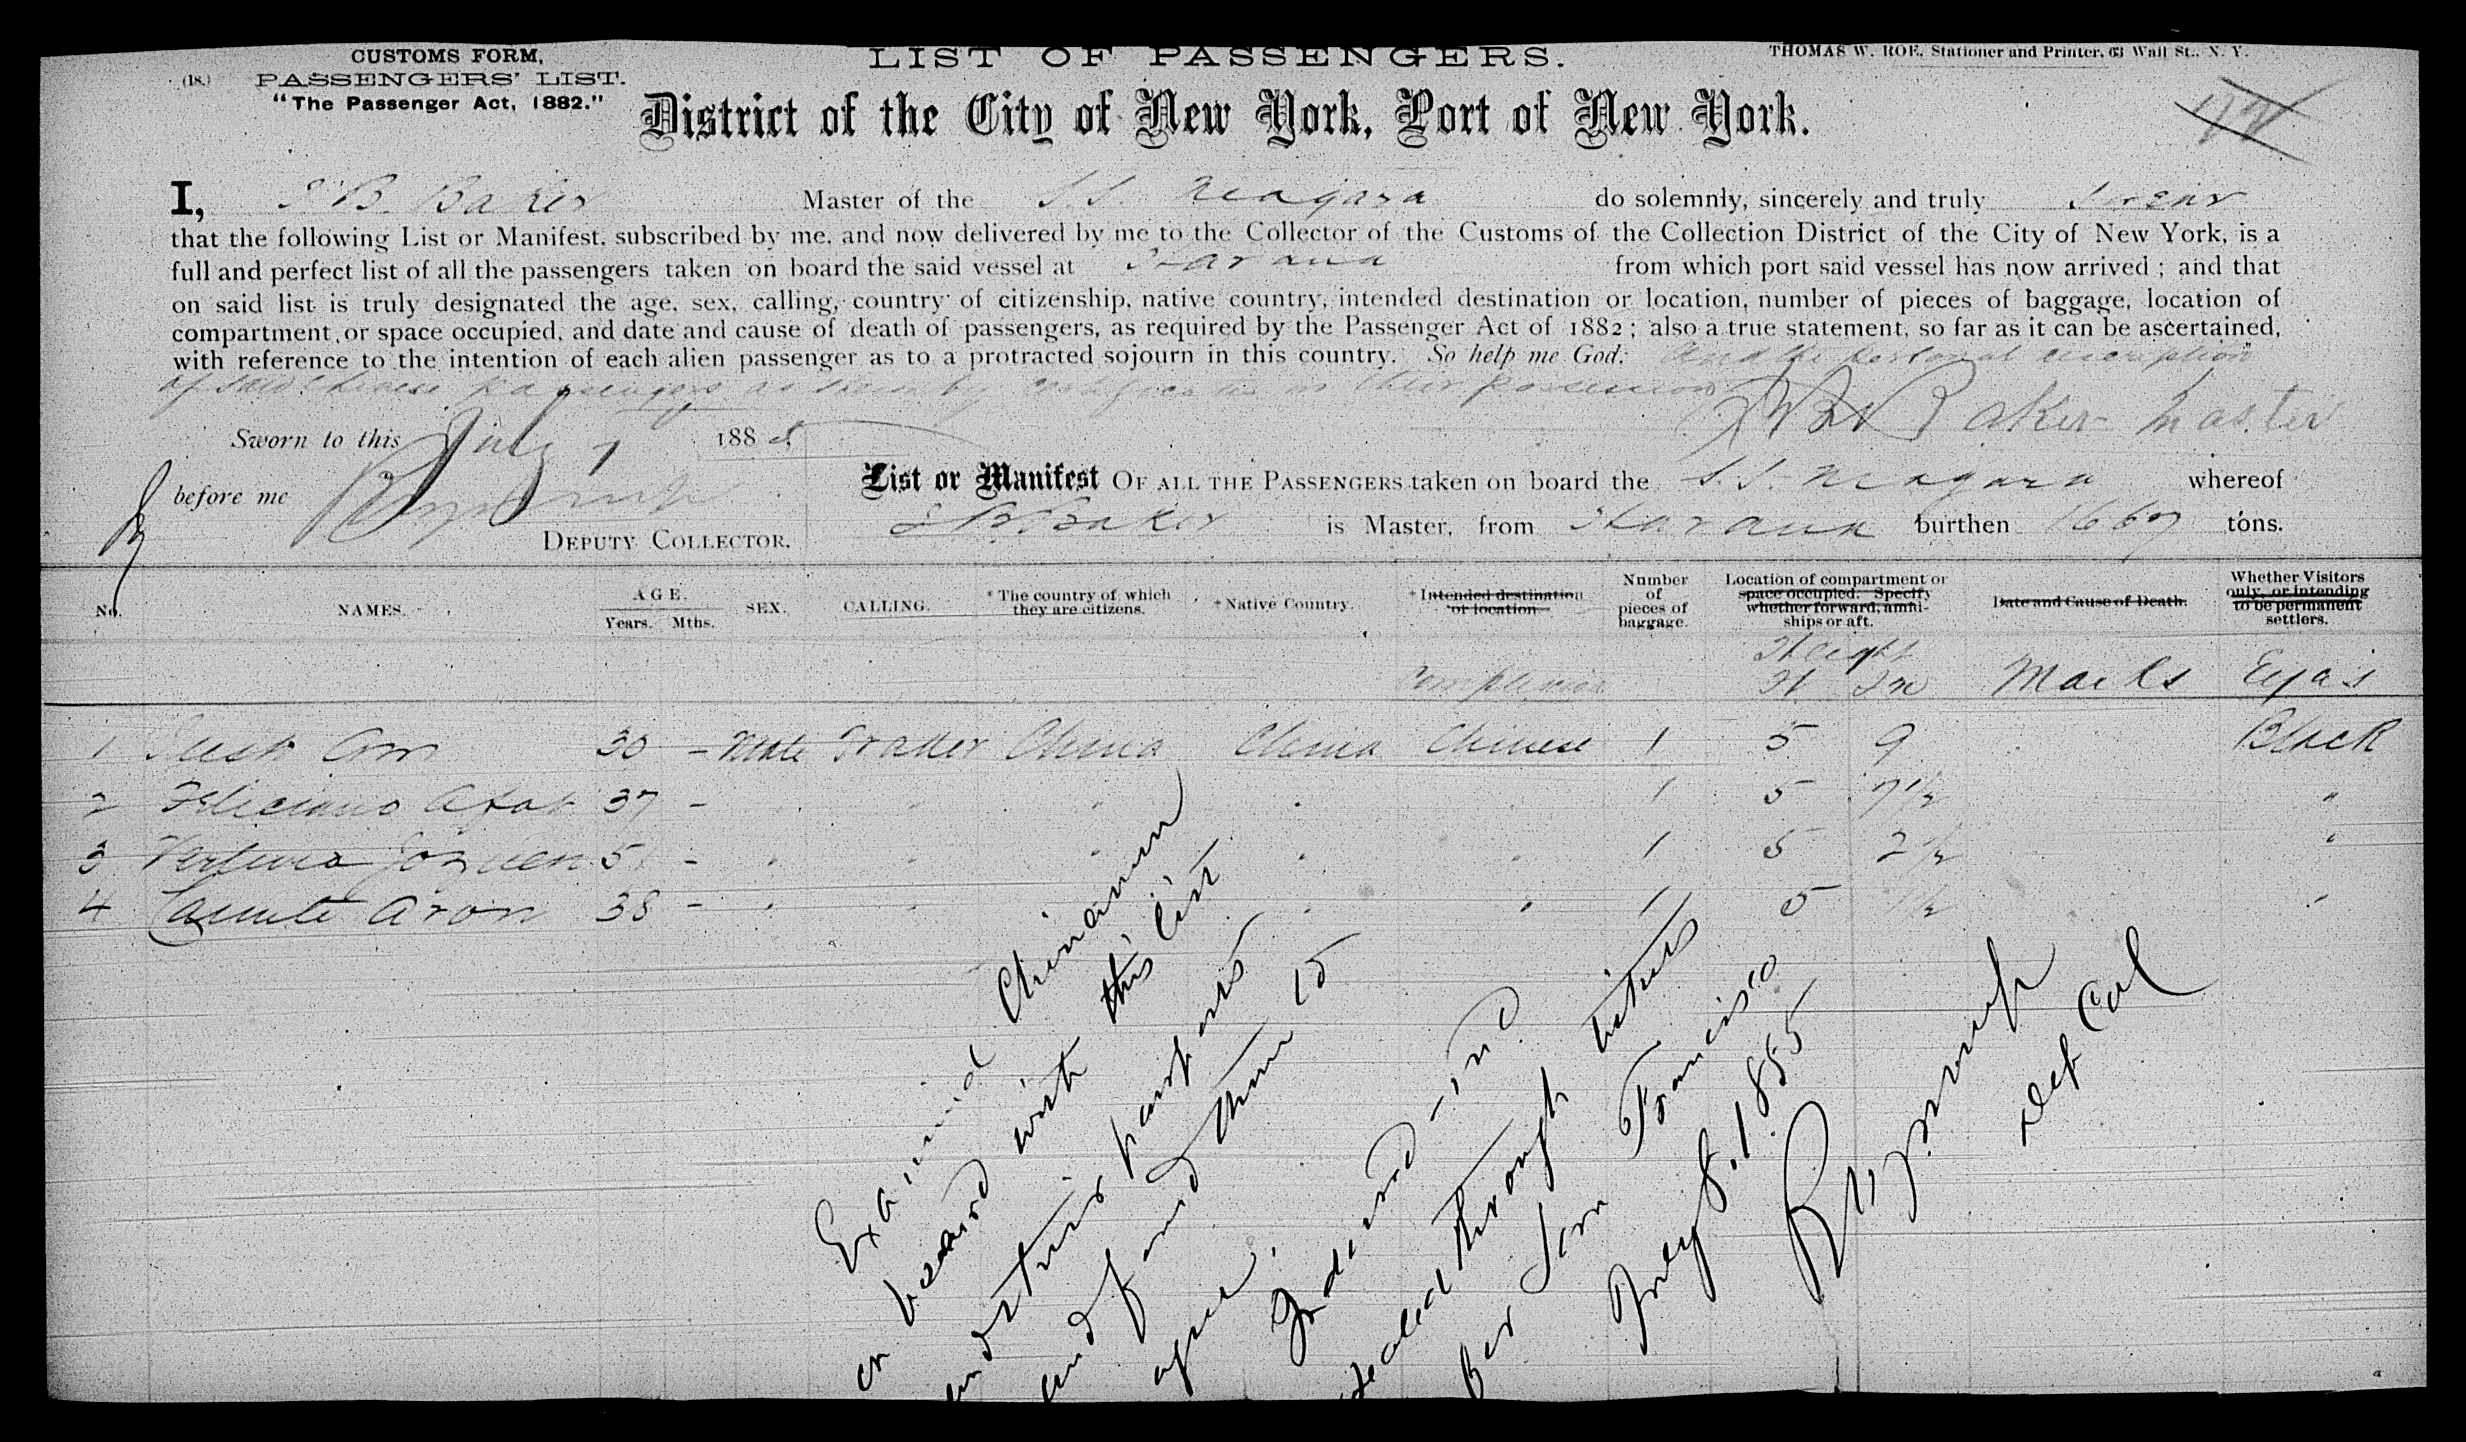 CUSTOMS FORM,
(18.) PASSENGERS' LIST.
"The Passenger Act, 1882."
LIST OF PASSENGERS.
THOMAS W. ROE, Stationer and Printer, 63 Wall St., N. Y.
District of the City of New York, Port of New York.
I, B. Baker Master of the S.S. Niagara do solemnly, sincerely and truly Swear
that the following List or Manifest, subscribed by me, and now delivered by me to the Collector of the Customs of the Collection District of the City of New York, is a
full and perfect list of all the passengers taken on board the said vessel at Havana from which port said vessel has now arrived ; and that
on said list is truly designated the age, sex, calling, country of citizenship, native country, intended destination or location, number of pieces of baggage, location of
compartment, or space occupied, and date and cause of death of passengers, as required by the Passenger Act of 1882 ; also a true statement, so far as it can be ascertained,
with reference to the intention of each alien passenger as to a protracted sojourn in this country. So help me God. And the personal description
of said Chinese passengers as shown by certificates in their possession
Baker Master
Sworn to this July 1885
before me
DEPUTY COLLECTOR.
List or Manifest OF ALL THE PASSENGERS taken on board the S.S. Niagara whereof
B Baker is Master, from Havana burthen 1667 tons.
No. NAMES. AGE. Years. Mths. SEX. CALLING. *The country of which they are citizens. *Native Country. *Intended destination or location. Number of pieces of baggage. Location of compartment or space occupied. Specify whether forward, amid-ships or aft. Date and Cause of Death. Whether Visitors only, or intending to be permanent settlers.
Complexion Height Ft In Marks Eyes
1 30 - Male Trader China China Chinese 1 5 9 Black
2 Feliciano 37 - " " " 1 5 7½ "
3 5 - " " " " " 1 5 2½ "
4 Aron 38 - " " " " 1 5 ½ "
Examined Chinamen
on board with this list
and their passports
and found them to
agree.
Ordered
sealed through tickets
for San Francisco
July 8. 1885
Dep Col